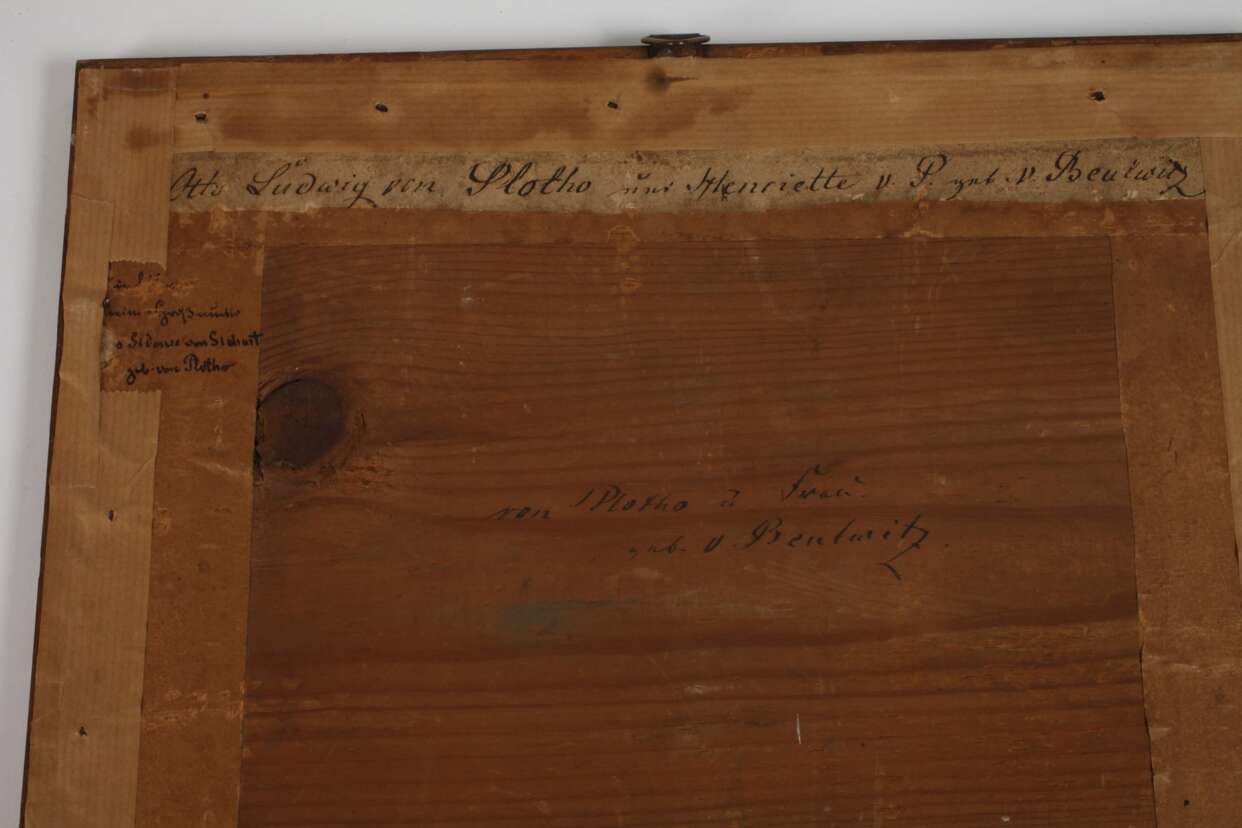 Otto Ludwig von Plotho und Henriette v. P. geb. v. Beulwitz
Großmutter
von
geb. von Plotho
von Plotho u Frau.
geb. v Beulwitz.